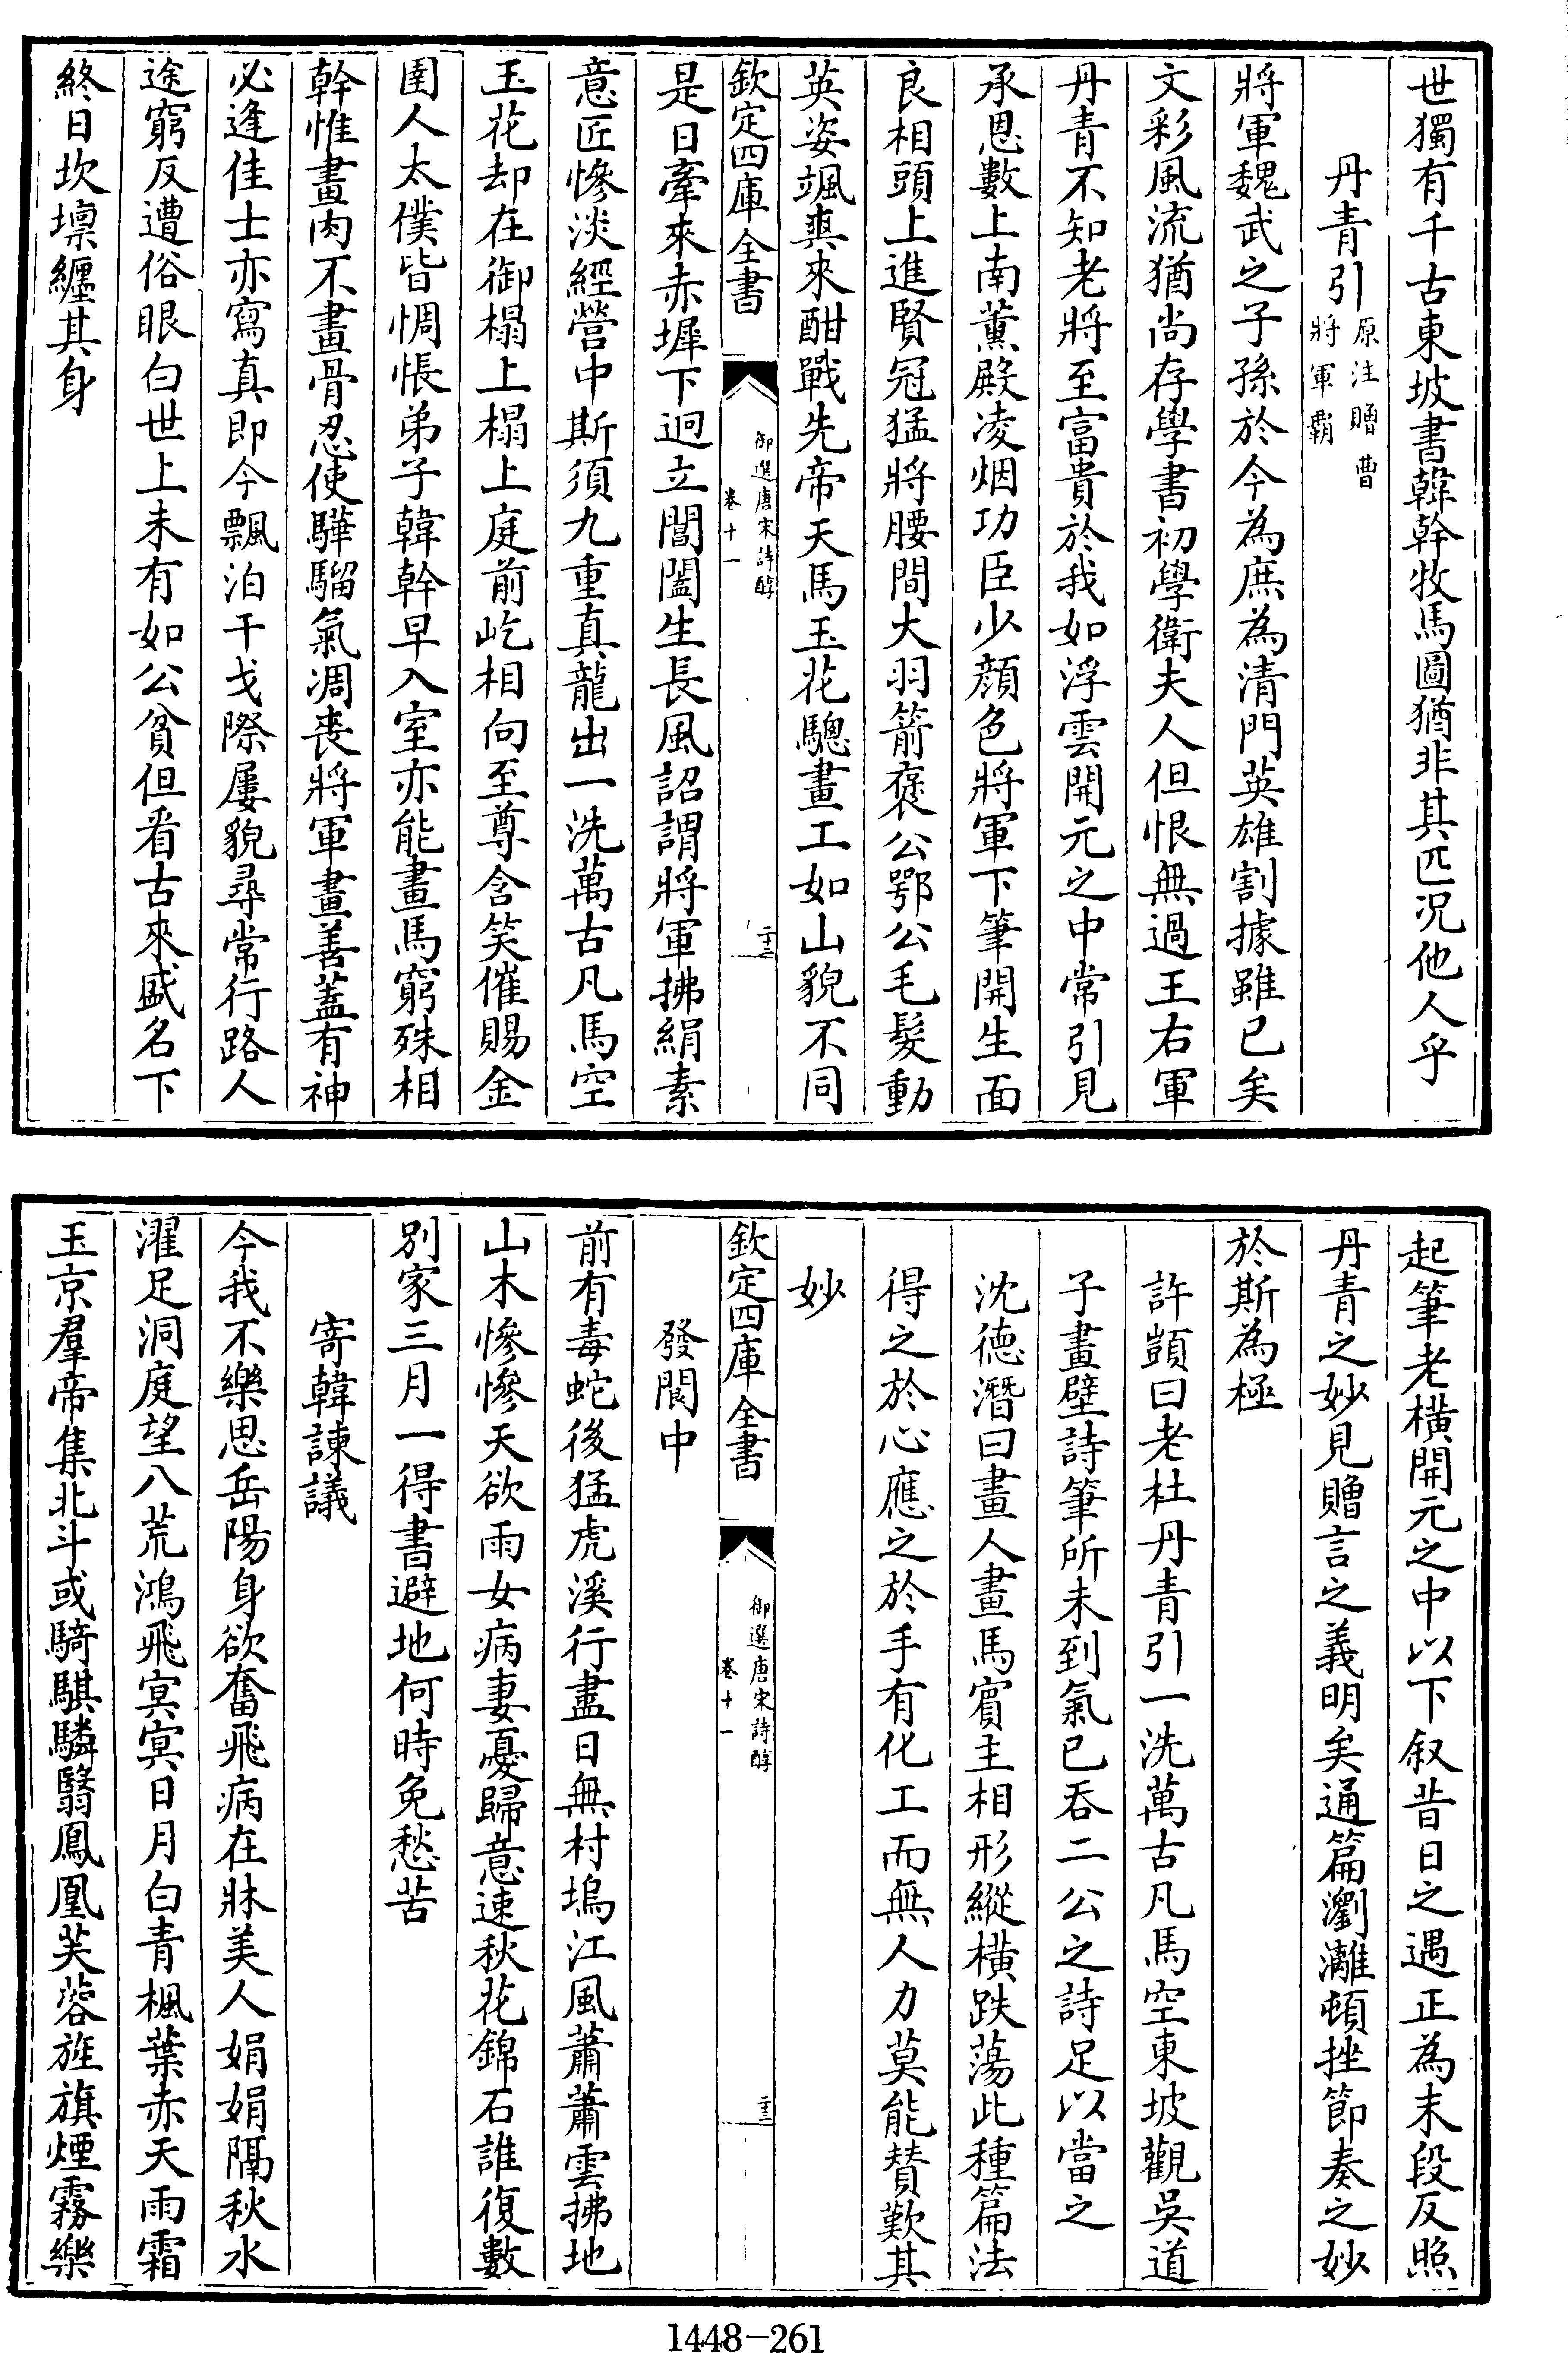 世獨有千古東坡書韓幹牧馬圖猶非其匹况他人乎
丹青引原注贈曹
將軍霸
將軍魏武之子孫於今為庶為清門英雄割據雖已矣
文彩風流猶尚存學書初學衛夫人但恨無過王右軍
丹青不知老將至富貴於我如浮雲開元之中常引見
承恩數上南薰殿凌烟功臣少顔色將軍下筆開生面
良相頭上進賢冠猛將腰間大羽箭褒公鄂公毛髮動
英姿颯爽來酣戰先帝天馬玉花驄畫工如山貌不同
欽定四庫全書
御選唐宋詩醇
卷十一
二十二
是日牽來赤墀下迥立閶闔生長風詔謂將軍拂絹素
意匠慘淡經營中斯須九重真龍出一洗萬古凡馬空
玉花却在御榻上榻上庭前屹相向至尊含笑催賜金
圉人太僕皆惆悵弟子韓幹早入室亦能畫馬窮殊相
幹惟畫肉不畫骨忍使驊騮氣凋喪將軍畫善蓋有神
必逢佳士亦寫真即今飄泊干戈際屢貌尋常行路人
途窮反遭俗眼白世上未有如公貧但看古來盛名下
終日坎壈纏其身
起筆老橫開元之中以下叙昔日之遇正為末段反照
丹青之妙見贈言之義明矣通篇瀏灕頓挫節奏之妙
於斯為極
許顗曰老杜丹青引一洗萬古凡馬空東坡觀吳道
子畫壁詩筆所未到氣已吞二公之詩足以當之
沈德潛曰畫人畫馬賓主相形縱橫跌蕩此種篇法
得之於心應之於手有化工而無人力莫能贊歎其
妙
欽定四庫全書
御選唐宋詩醇
卷十一
二十三
發閬中
前有毒蛇後猛虎溪行盡日無村塢江風蕭蕭雲拂地
山木慘慘天欲雨女病妻憂歸意速秋花錦石誰復數
別家三月一得書避地何時免愁苦
寄韓諫議
今我不樂思岳陽身欲奮飛病在牀美人娟娟隔秋水
濯足洞庭望八荒鴻飛冥冥日月白青楓葉赤天雨霜
玉京羣帝集北斗或騎騏驎翳鳳凰芙蓉旌旗煙霧樂
1448-261